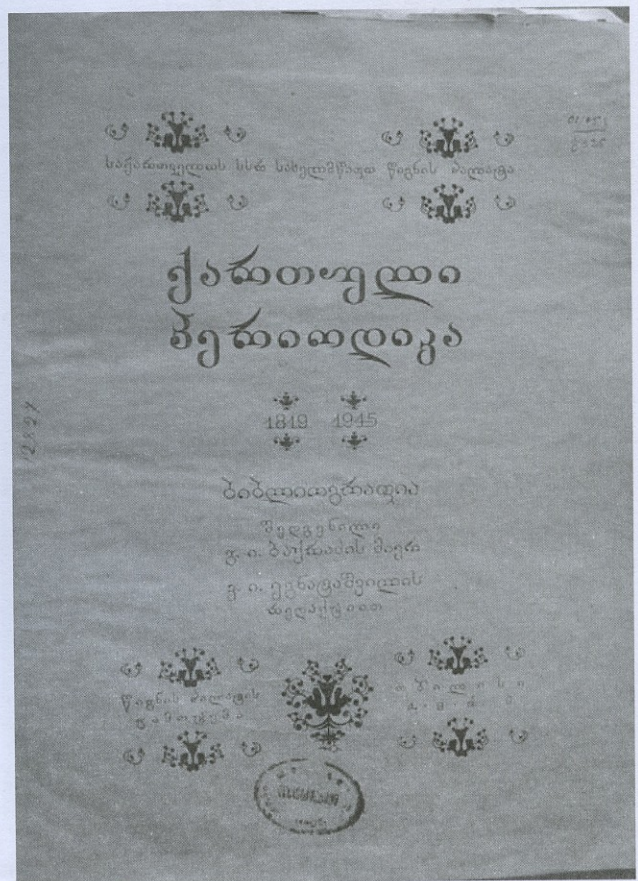 საქართველოს სსრ სახელმწიფო წიგნის პალატა
ქართული
პერიოდიკა
1819 1945
ბიბლიოგრაფია
შედგენილი
გ. ი. ბაქრაძის მიერ
ვ. ი. ეგნატაშვილის
რედაქციით
წიგნის პალატის
გამოცემა
თბილისი
12827